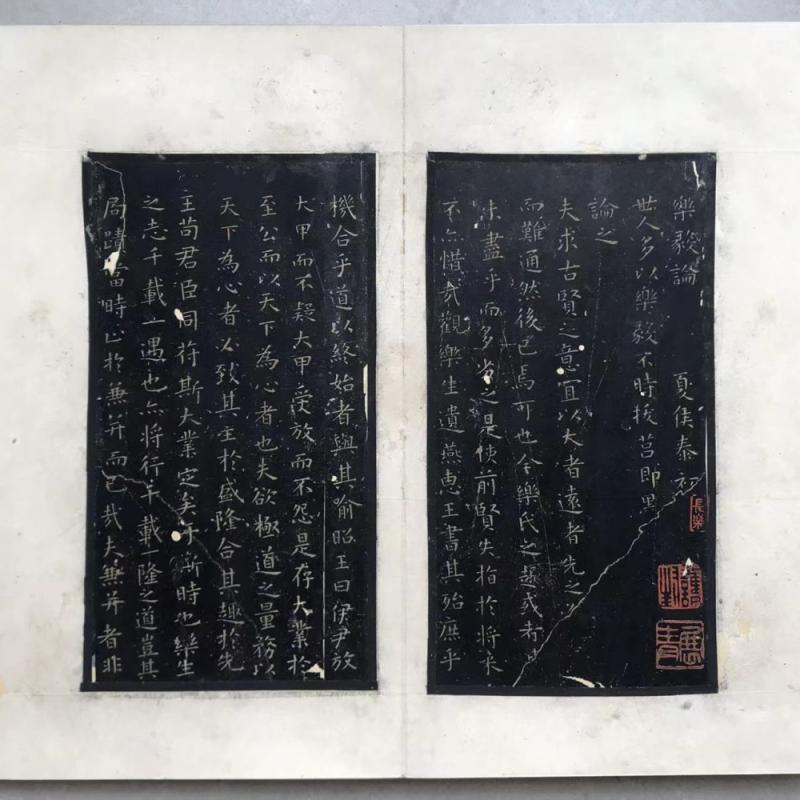 樂毅論 夏侯泰初
世人多以樂毅不時拔莒即墨
論之
夫求古賢之意宜以大者遠者先之
而難通然後已焉可也今樂氏之趣或者
未盡乎而多劣之是使前賢失指於將來
不亦惜哉觀樂生遺燕惠王書其殆庶乎
機合乎道以終始者與其喻昭王曰伊尹放
大甲而不疑大甲受放而不怨是存大業於
至公而以天下為心者也夫欲極道之量務以
天下為心者必致其主於盛隆合其趣於先
王苟君臣同符斯大業定矣于斯時也樂生
之志千載一遇也亦將行千載一隆之道豈其
局蹟當時止於兼并而已哉夫兼并者非
長樂